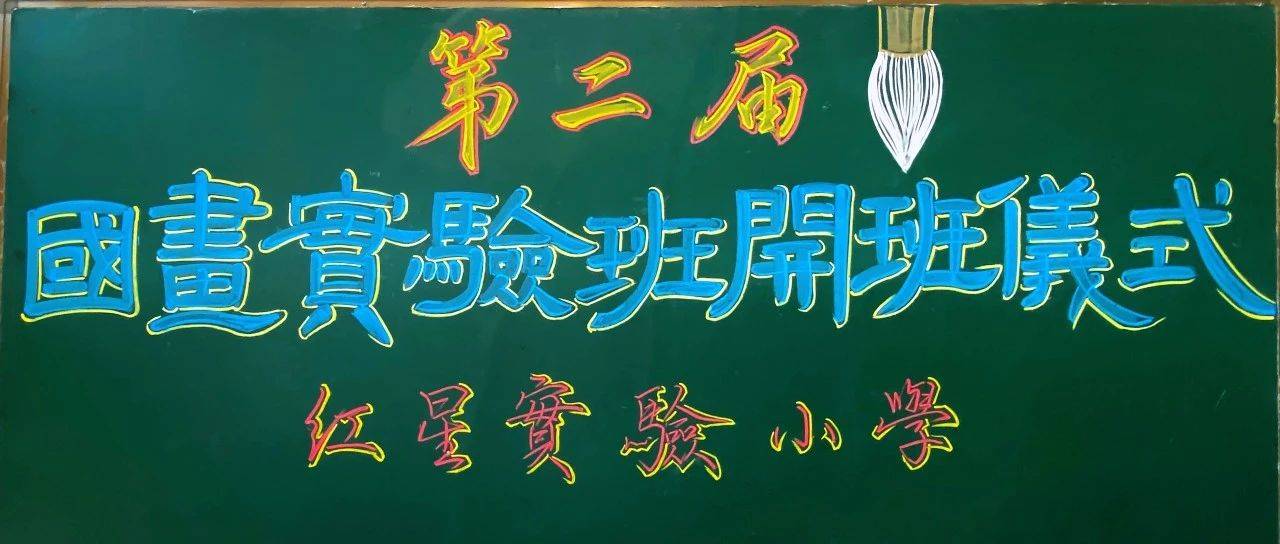 第二届
國畫實驗班開班儀式
红星實驗小學